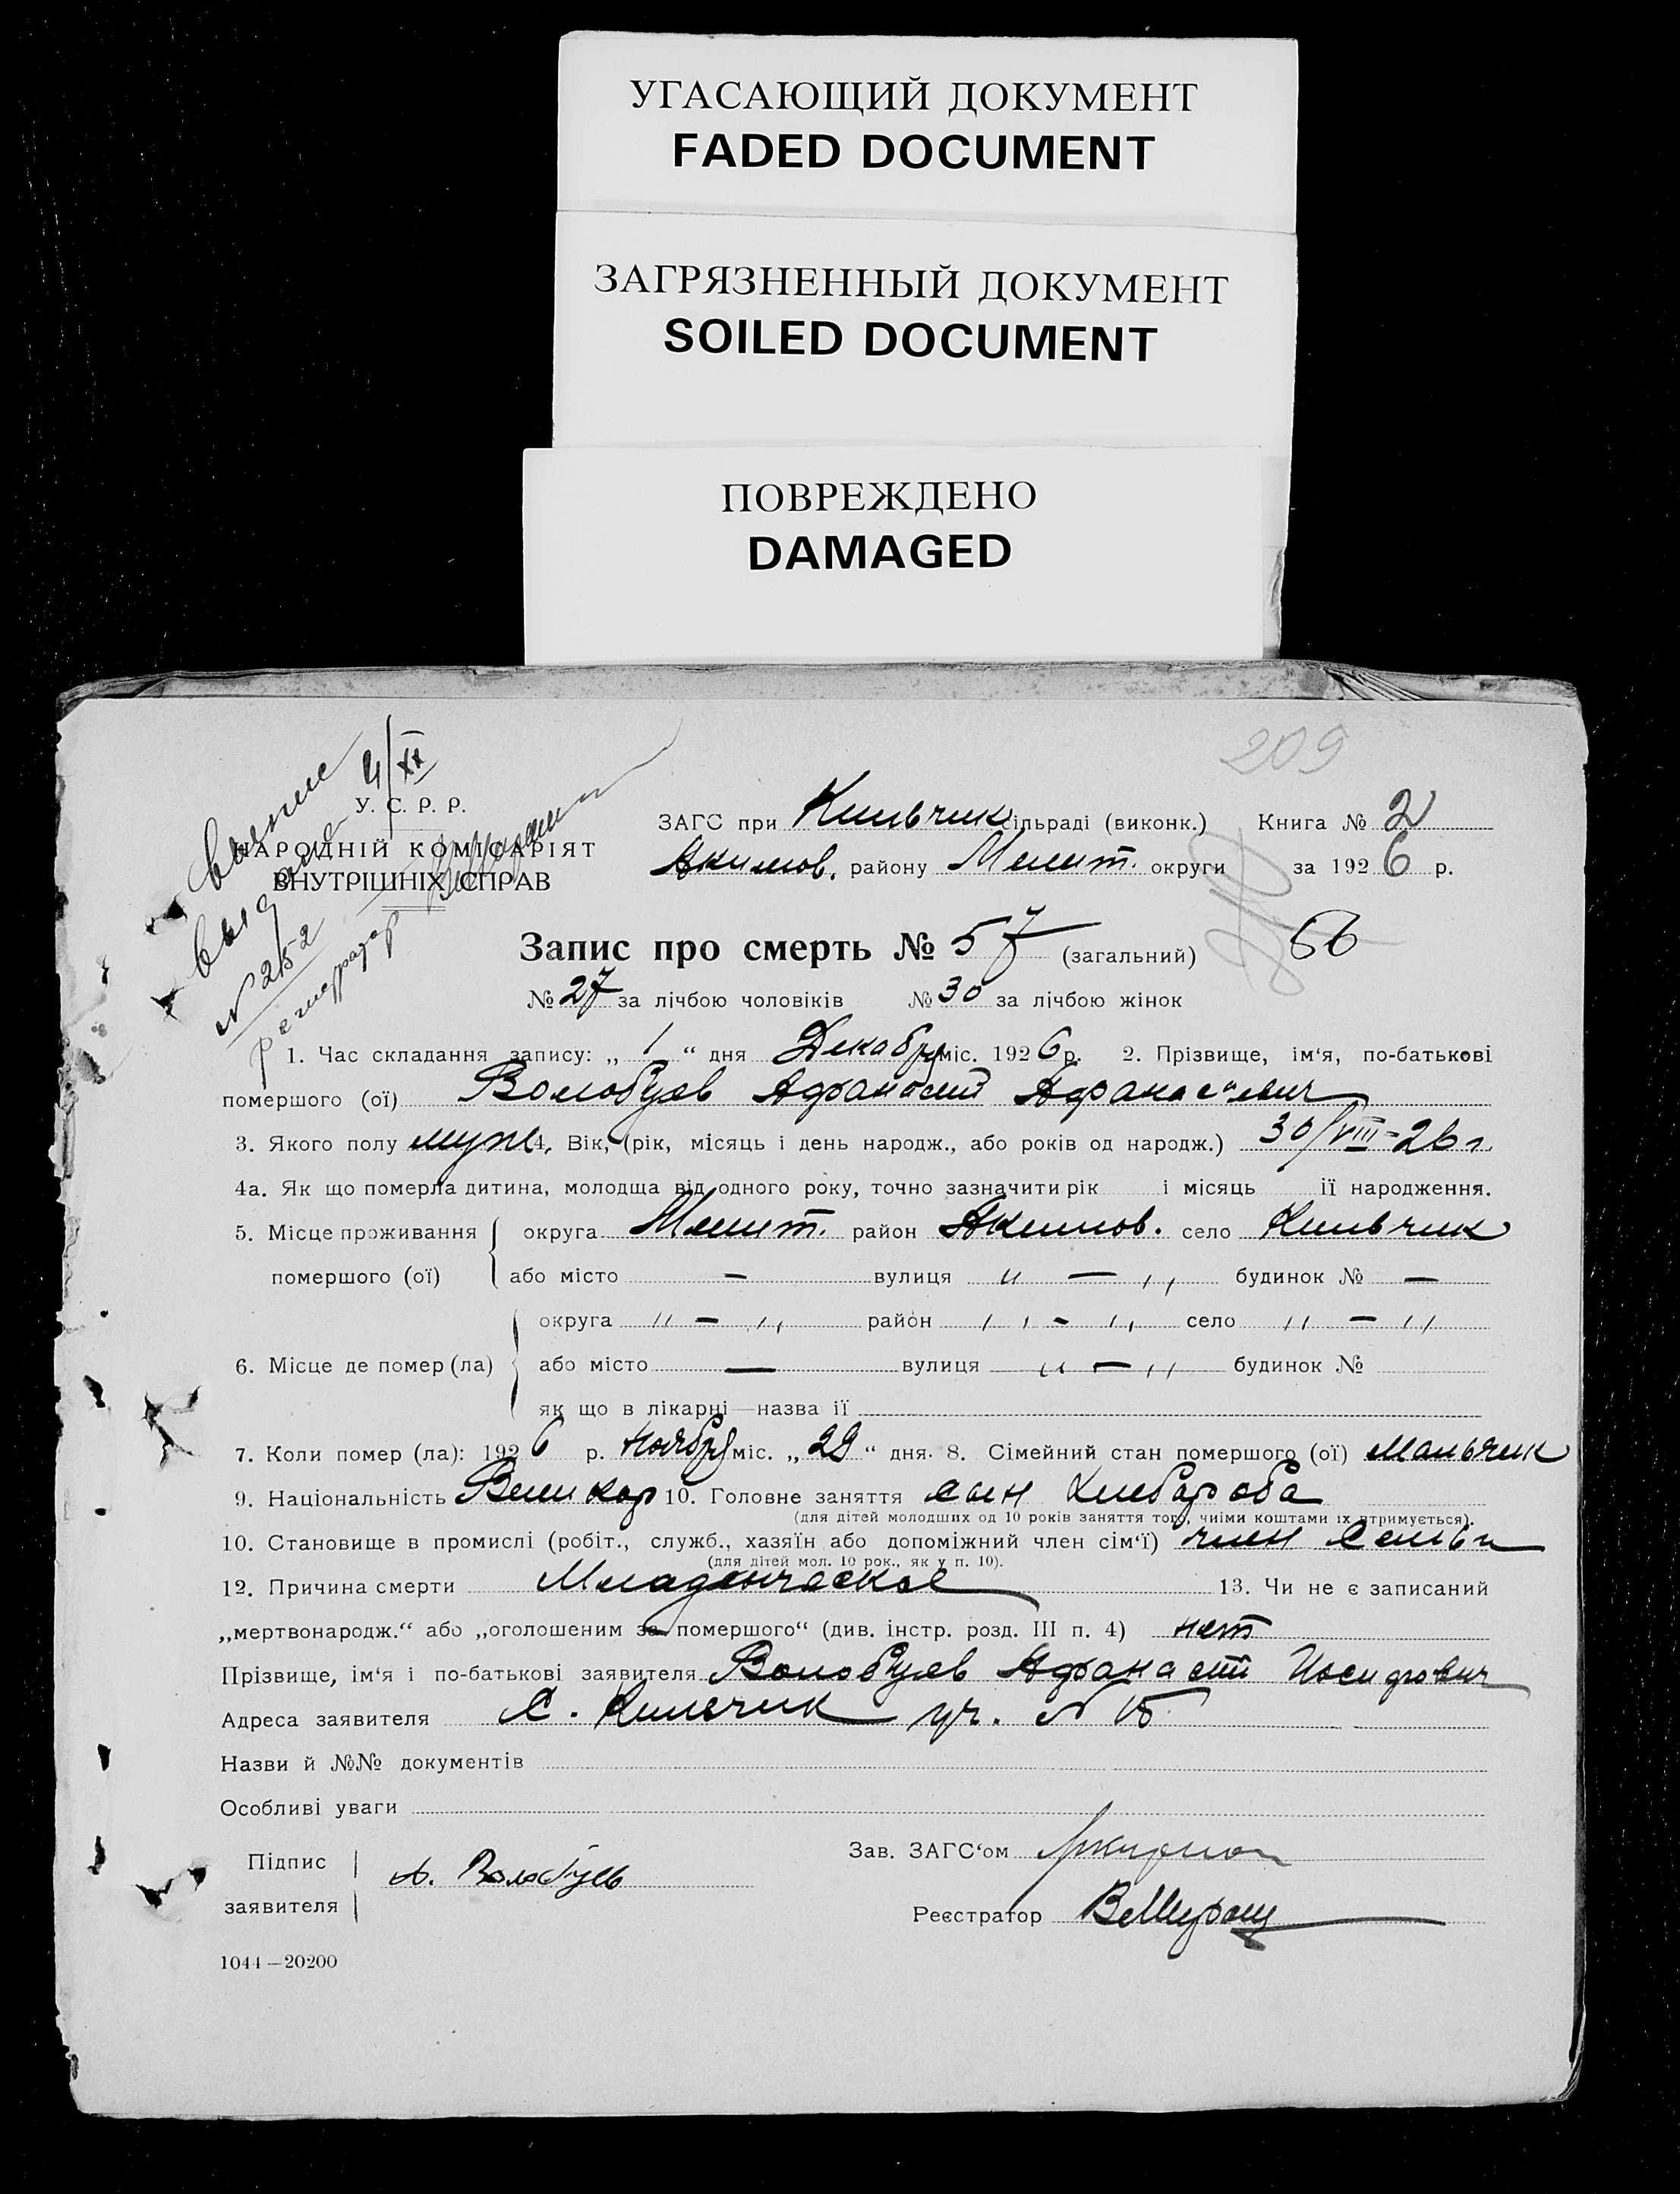 УГАСАЮЩИЙ ДОКУМЕНТ
FADED DOCUMENT
ЗАГРЯЗНЕННЫЙ ДОКУМЕНТ
SOILED DOCUMENT
ПОВРЕЖДЕНО
DAMAGED
209
4/XII
выпис
выдана
N 252
регистратор
У. С. Р. Р.
НАРОДНІЙ КОМІСАРІЯТ
ВНУТРІШНІХ СПРАВ
ЗАГС при Кильчик сільраді (виконк.) Книга № 2
Акимов. району Мелит. округи за 1926 р.
Запис про смерть № 57 (загальний) 56
№ 27 за лічбою чоловіків № 30 за лічбою жінок
1. Час складання запису: „ 1 “ дня Декабря міс. 1926 р. 2. Прізвище, ім‘я, по-батькові
помершого (ої) Волобуев Афанасий Афанасьевич
3. Якого полу муж 4. Вік, (рік, місяць і день народж., або років од народж.) 30/VIII-26 г.
4а. Як що померла дитина, молодща від одного року, точно зазначити рік і місяць її народження.
5. Місце проживання округа Мелит. район Акимов. село Кильчик
помершого (ої) або місто — вулиця „ — „ будинок № —
округа „ — „ район „ — „ село „ — „
6. Місце де помер (ла) або місто — вулиця „ — „ будинок №
як що в лікарні — назва її
7. Коли помер (ла): 1926 р. Ноября міс. „ 29 “ дня. 8. Сімейний стан помершого (ої) Мальчик
9. Національність Великор 10. Головне заняття сын Хлебороба
(для дітей молодших од 10 років заняття того, чиїми коштами їх втримується).
10. Становище в промислі (робіт., служб., хазяїн або допоміжний член сім‘ї) член семьи
(для дітей мол. 10 рок., як у п. 10).
12. Причина смерти Младенческая 13. Чи не є записаний
„мертвонародж.“ або „оголошеним за помершого“ (див. інстр. розд. III п. 4) нет
Прізвище, ім‘я і по-батькові заявителя Волобуев Афанасий Иосифович
Адреса заявителя с. Кильчик уч. N 15
Назви й №№ документів
Особливі уваги
Підпис заявителя А. Волобуев
Зав. ЗАГС‘ом
Реєстратор
1044—20200